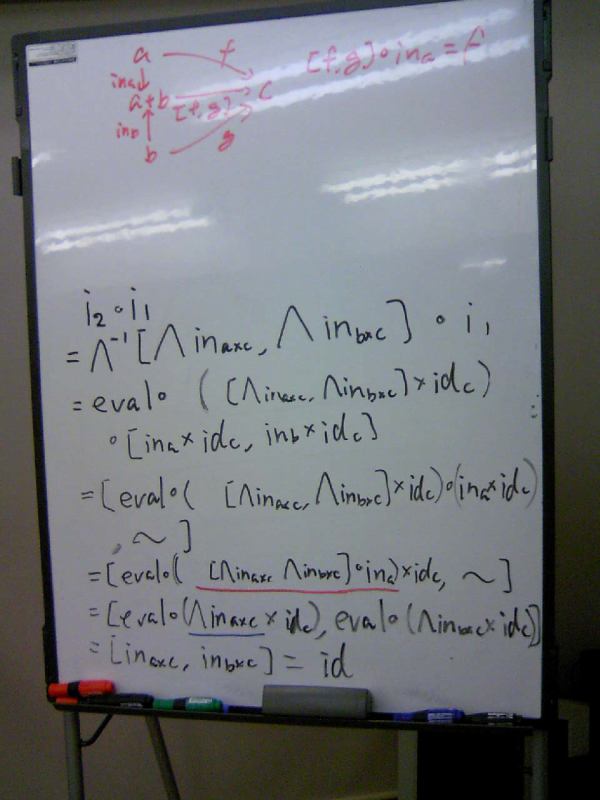 a f [f,g]∘in_a = f
in_a↓
a+b [f,g] c
in_b↑
b g
i₂∘i₁
= Λ⁻¹[Λin_{a×c}, Λin_{b×c}]∘i₁
= eval∘([Λin_{a×c}, Λin_{b×c}]×id_c)
∘[in_a×id_c, in_b×id_c]
=[eval∘([Λin_{a×c}, Λin_{b×c}]×id_c)∘(in_a×id_c)
, ~]
=[eval∘([Λin_{a×c} Λin_{b×c}]∘in_a)×id_c, ~]
=[eval∘(Λin_{a×c}×id_c), eval∘(Λin_{b×c}×id_c)]
=[in_{a×c}, in_{b×c}] = id